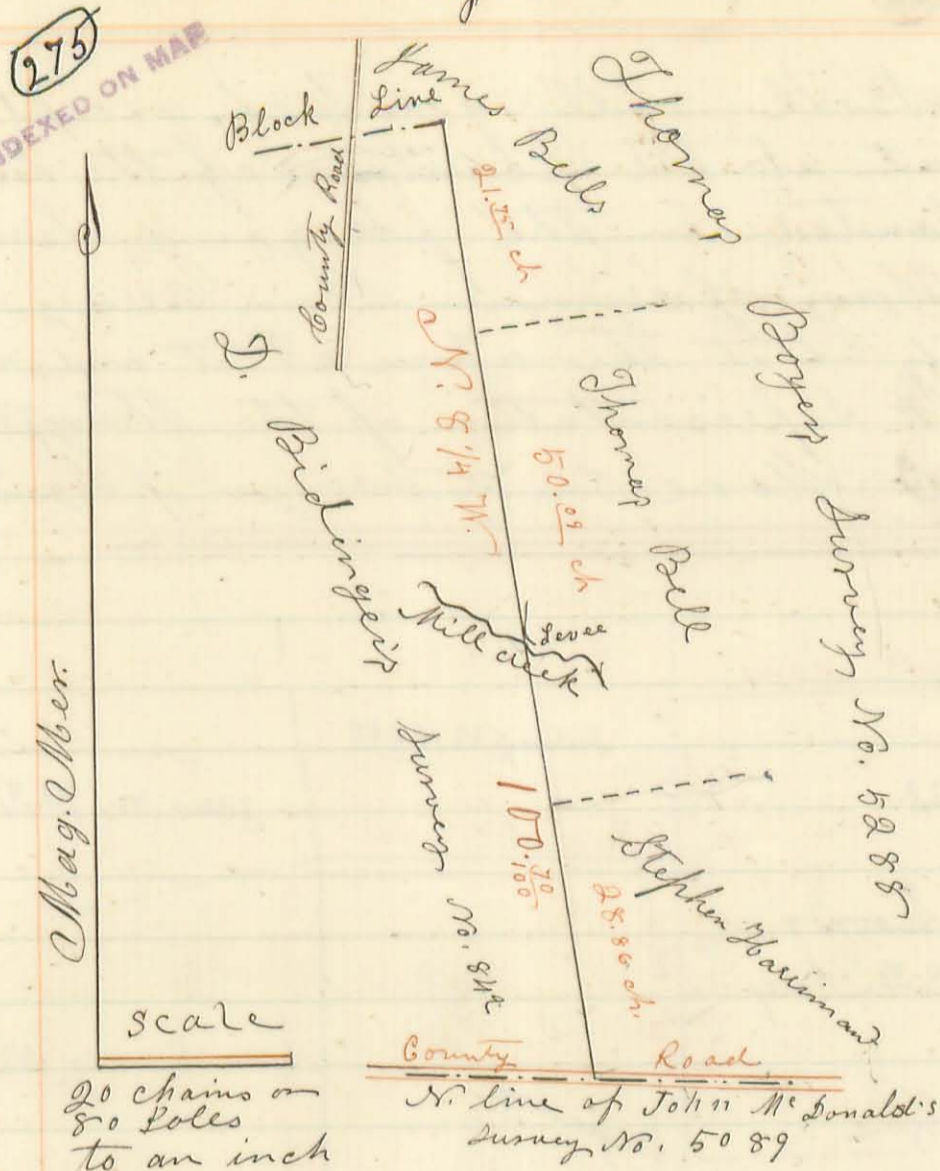 275
INDEXED ON MAP
Block Line
County Road
James Bells
21.75 ch
Thomas Boyers Survey No. 5288
N. 8 1/4 W.
Thomas Bell
50.09 ch
D. Bidinger's Survey No. 842
Mill Creek
Levee
100.70/100
Stephen Harriman
28.86 ch.
Mag. Mer.
Scale
20 chains or
80 Poles
to an inch
County Road
N. line of John McDonald's
Survey No. 5089